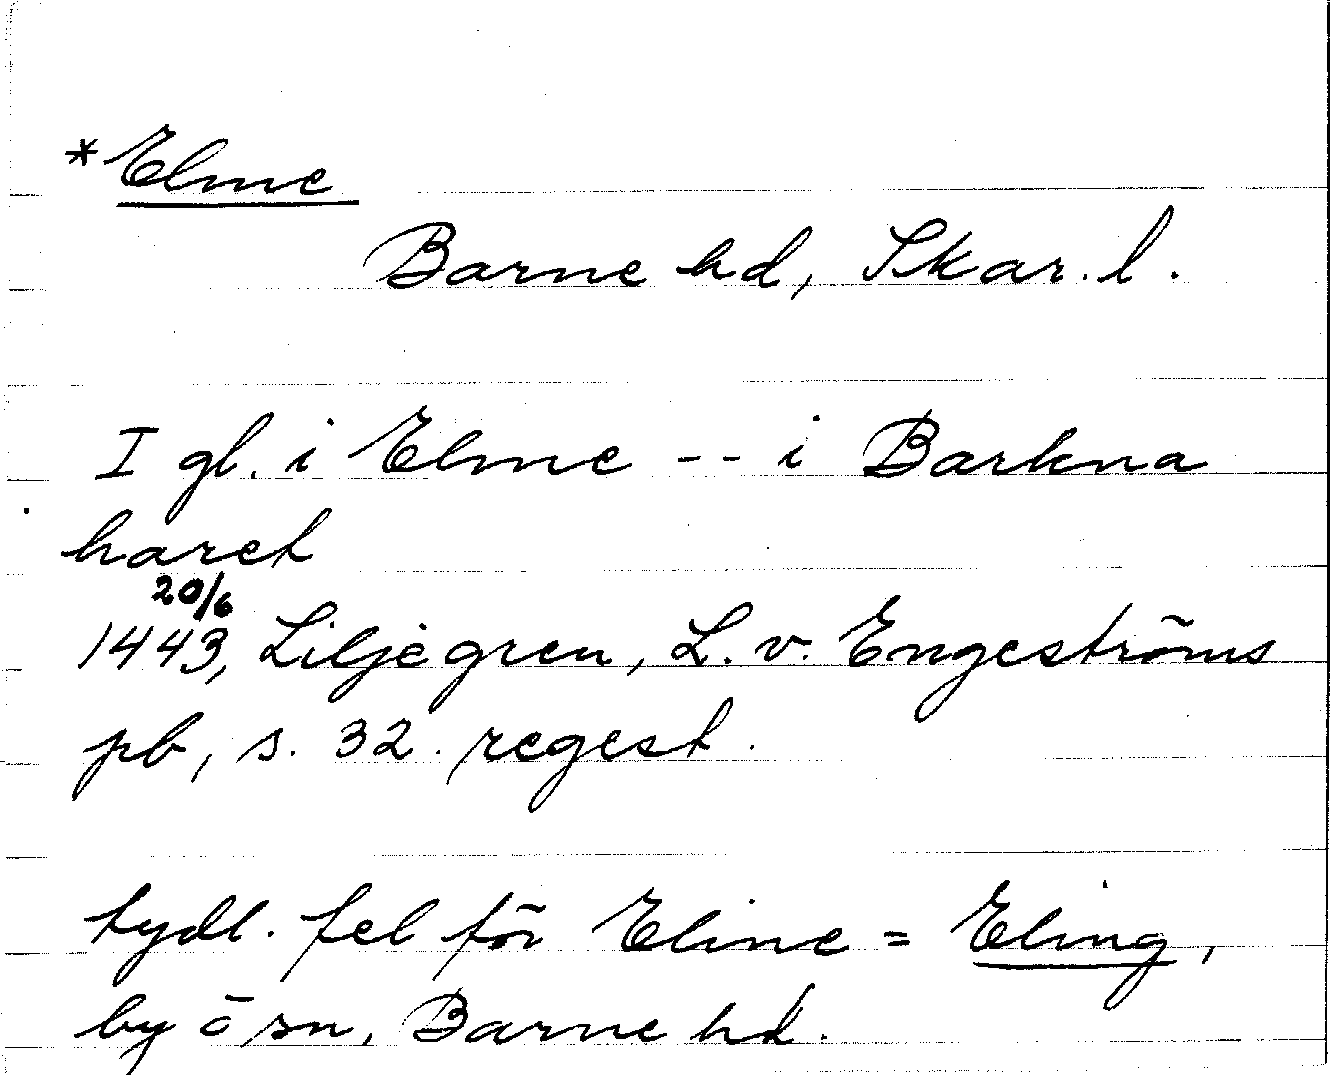 *Elme
Barne hd, Skar. l.
I gl. i Elme -- i Barkna
haret
20/6
1443, Liljegren, L. v. Engeströms
pb, s. 32. regest.
tydl. fel för Eline = Eling,
by o sn, Barne hd.